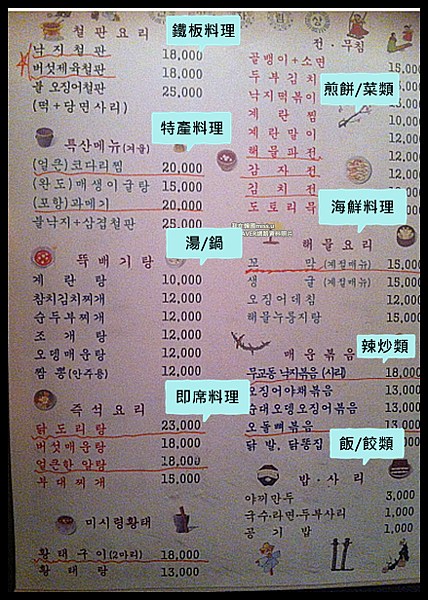 철판요리
鐵板料理
낙지철판 18,000
버섯제육철판 18,000
불오징어철판 25,000
(떡+당면사리)
특산메뉴(겨울)
特產料理
(얼큰)코다리찜 20,000
(완도)매생이굴탕 15,000
(포항)과메기 20,000
불낙지+삼겹철판 25,000
뚝배기탕
湯/鍋
계란탕 10,000
참치김치찌개 12,000
순두부찌개 12,000
조개탕 12,000
오뎅매운탕 12,000
짬뽕(안주용) 12,000
즉석요리
即席料理
닭도리탕 23,000
버섯매운탕 18,000
얼큰한알탕 18,000
부대찌개 15,000
미시령황태
황태구이(2마리) 18,000
황태탕 13,000
전·무침
골뱅이+소면 15,000
두부김치
낙지떡볶이
煎餅/菜類
계란찜
계란말이 12,000
해물파전
감자전
김치전
도토리묵
海鮮料理
해물요리
꼬막(계절메뉴) 15,000
생굴(계절메뉴) 15,000
오징어데침 12,000
해물누룽지탕 15,000
매운볶음
辣炒類
무교동낙지볶음(사리) 18,000
오징어야채볶음 13,000
순대오뎅오징어볶음 13,000
오돌뼈볶음 13,000
닭발,닭똥집
飯/餃類
밥·사리
야끼만두 3,000
국수·라면·두부사리 1,000
공기밥 1,000